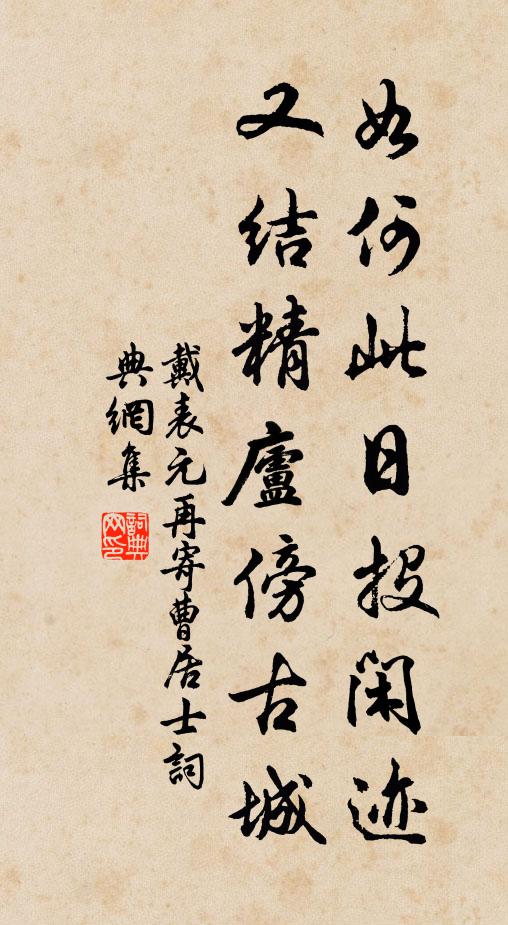 如何此日投闲迹
又结精廬傍古城
戴表元再寄曹居士詞
典網集
詞典
网印